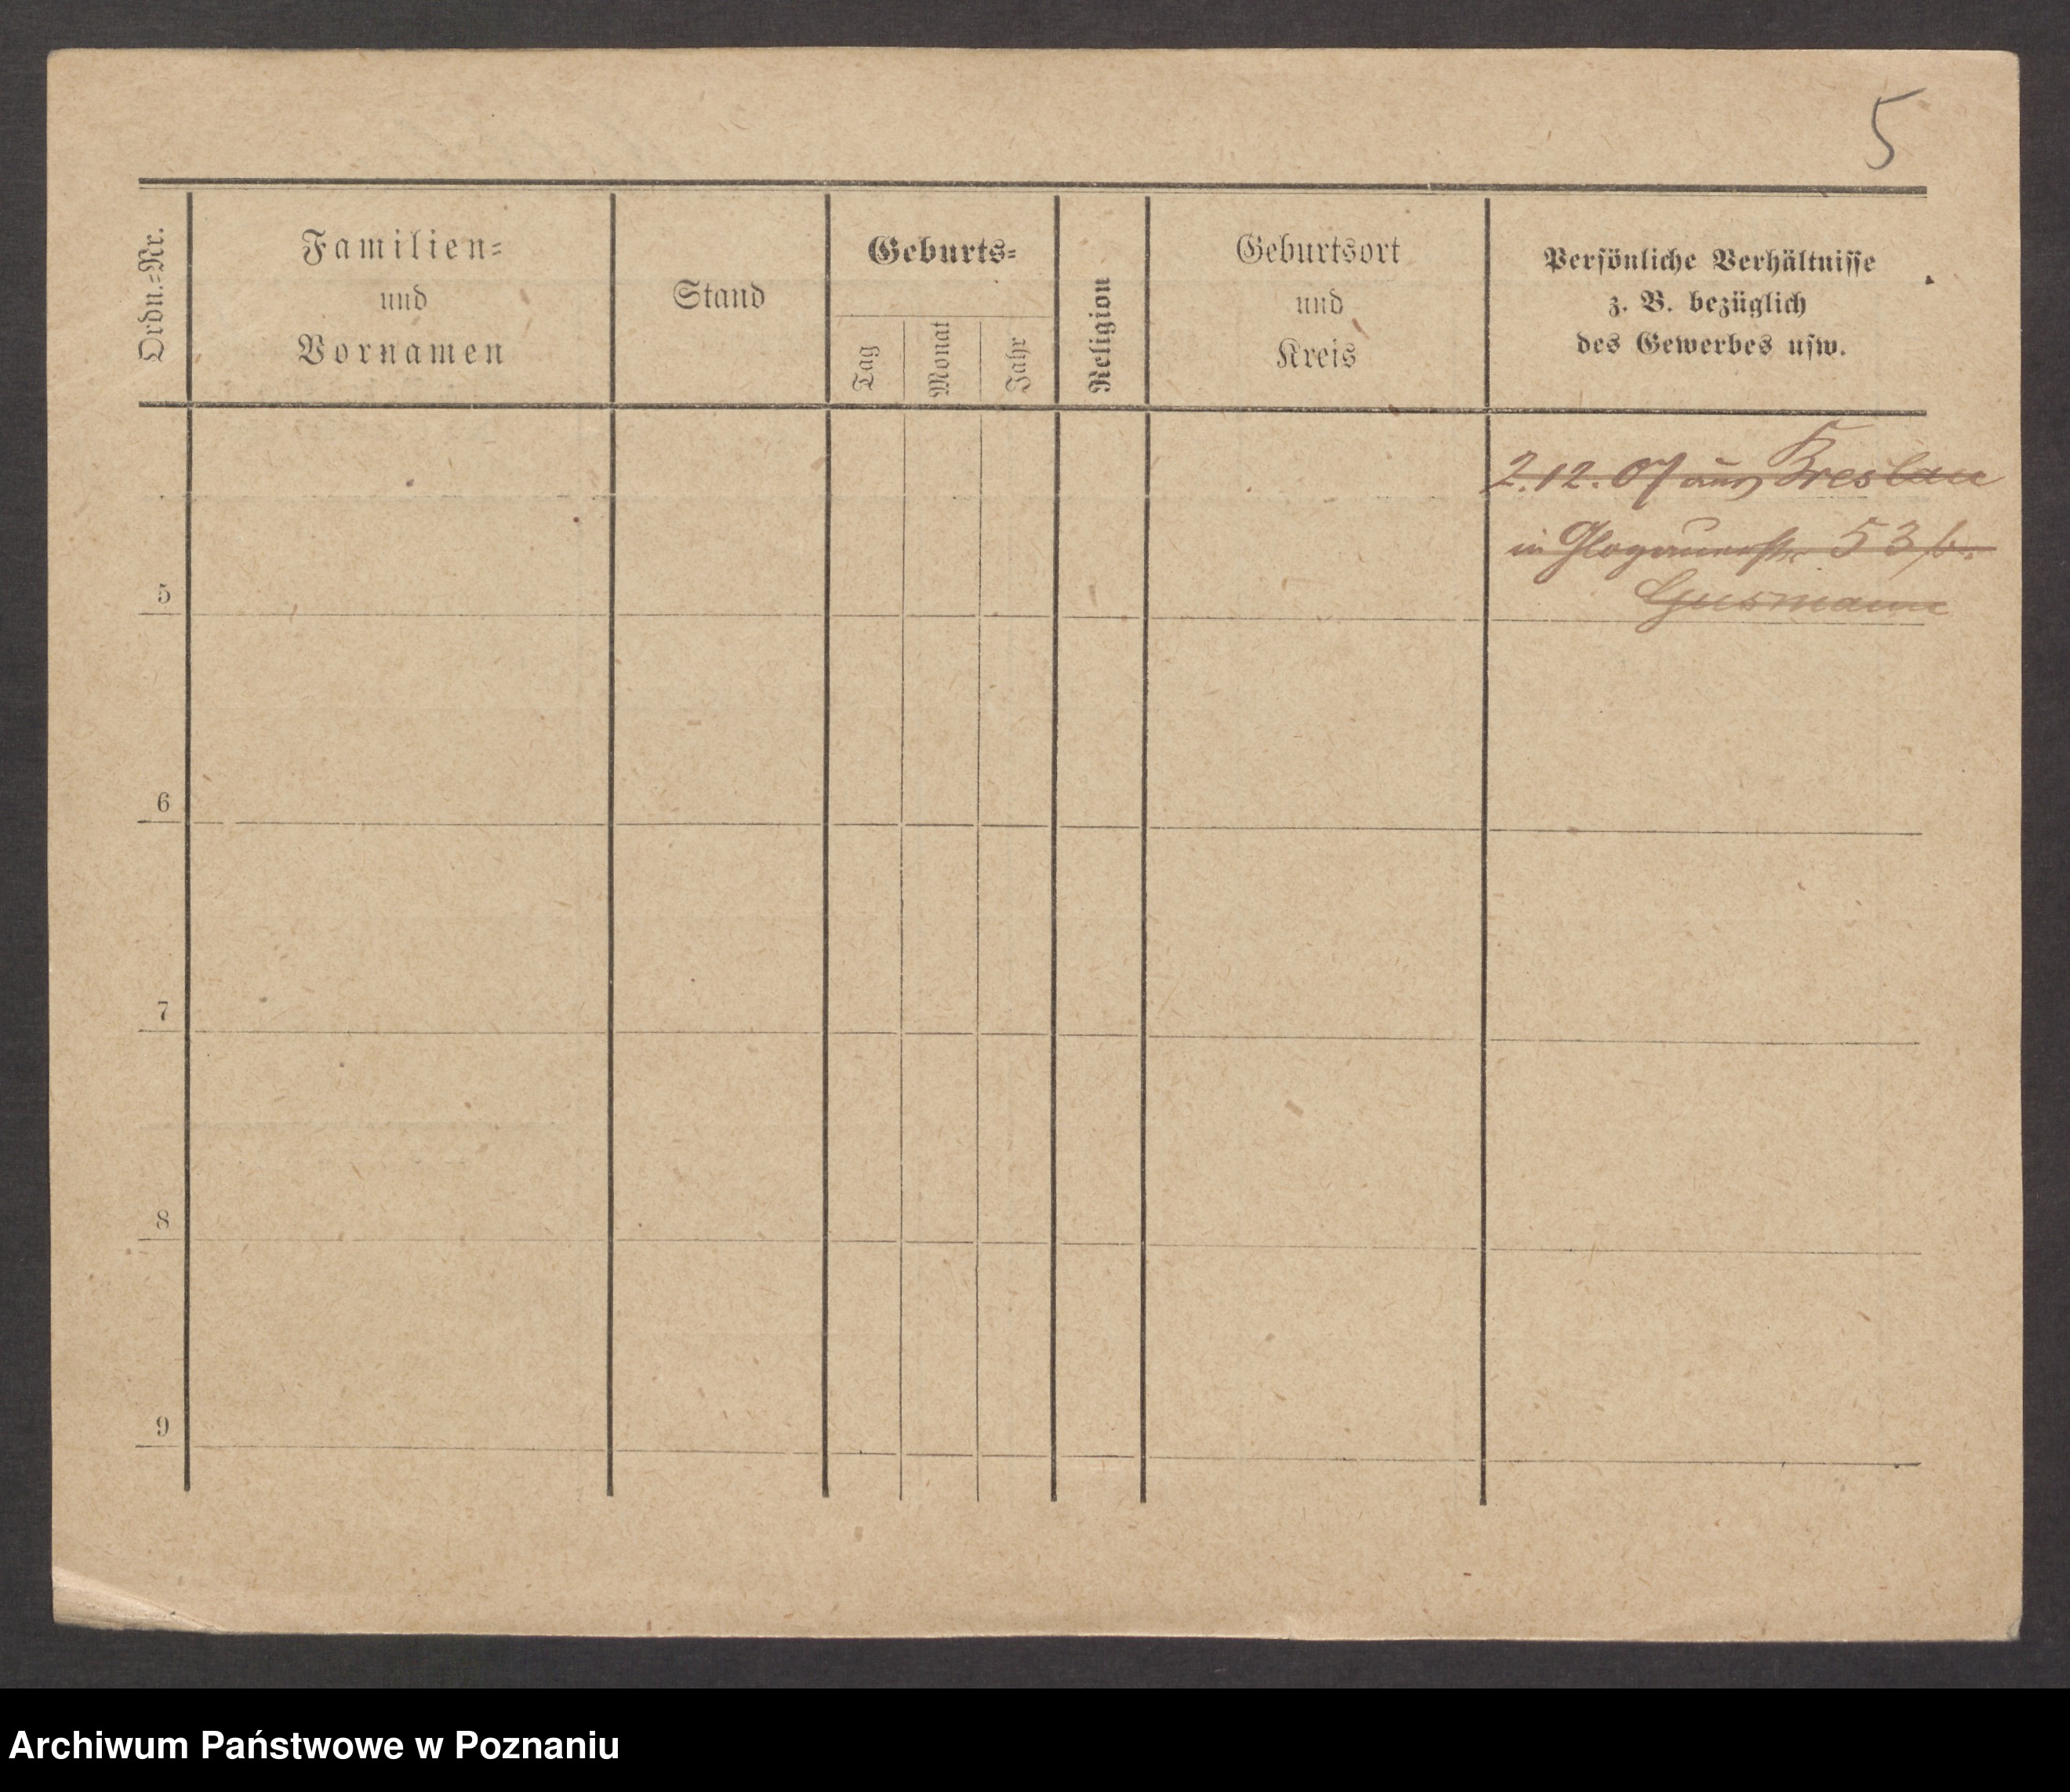 5
Ordn.=Nr.
Familien=
und
Vornamen
Stand
Geburts=
Tag
Monat
Jahr
Religion
Geburtsort
und
Kreis
Persönliche Verhältnisse
z. B. bezüglich
des Gewerbes usw.
2.12.07 aus Breslau
in Glogauerstr. 53 b.
5
6
7
8
9
Archiwum Państwowe w Poznaniu